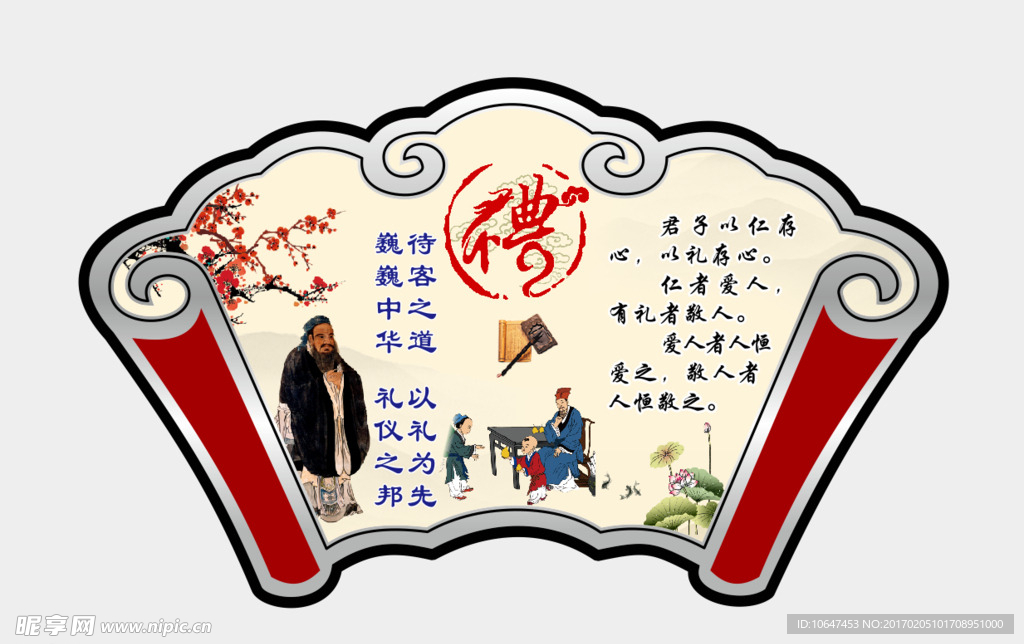 禮
待客之道 以礼为先
巍巍中华 礼仪之邦
君子以仁存
心，以礼存心。
仁者爱人，
有礼者敬人。
爱人者人恒
爱之，敬人者
人恒敬之。
昵享网 www.nipic.cn
ID:10647453 NO:20170205101708951000